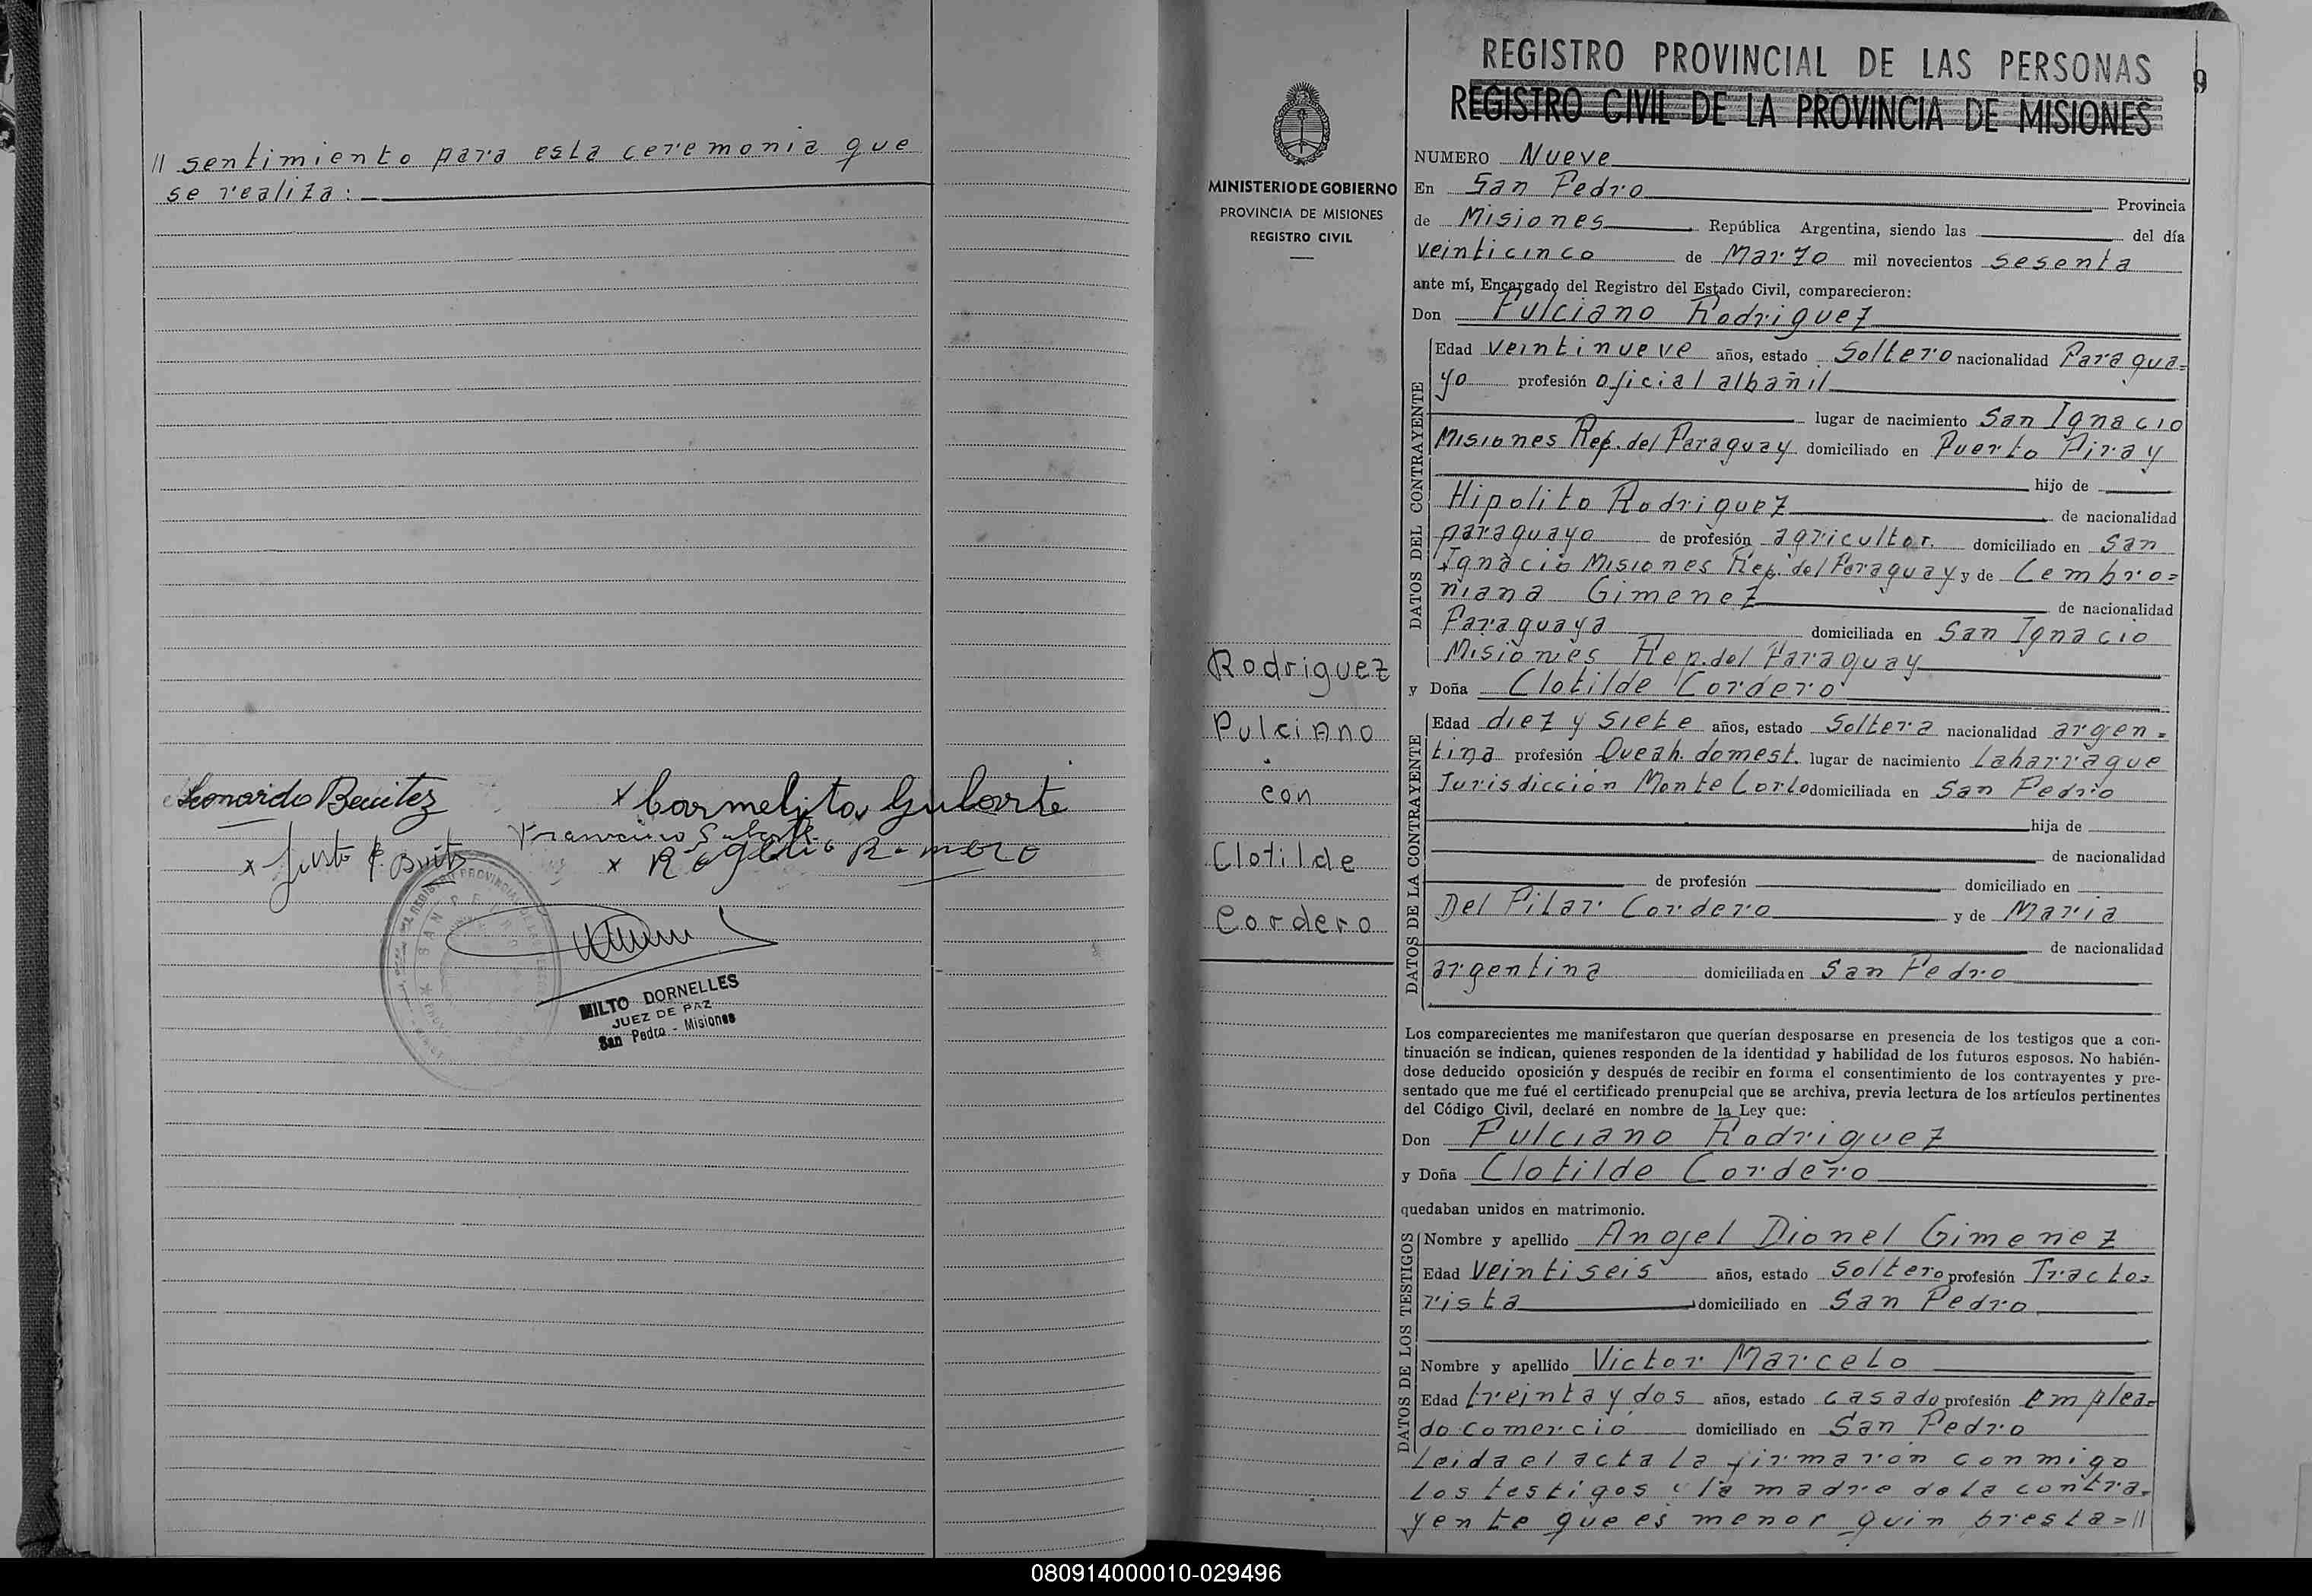 // sentimiento para esta ceremonia que
se realiza:
Leonardo Benitez
x Carmelita Gularte
x Rogelio Romero
SAN PEDRO
MILTO DORNELLES
JUEZ DE PAZ
San Pedro - Misiones
MINISTERIO DE GOBIERNO
PROVINCIA DE MISIONES
REGISTRO CIVIL
Rodriguez
Pulciano
con
Clotilde
Cordero
REGISTRO PROVINCIAL DE LAS PERSONAS
9
REGISTRO CIVIL DE LA PROVINCIA DE MISIONES
NUMERO Nueve
En San Pedro Provincia
de Misiones República Argentina, siendo las del día
veinticinco de Marzo mil novecientos sesenta
ante mí, Encargado del Registro del Estado Civil, comparecieron:
Don Pulciano Rodriguez
DATOS DEL CONTRAYENTE
Edad veintinueve años, estado Soltero nacionalidad Paragua=
yo profesión oficial albañil
lugar de nacimiento San Ignacio
Misiones Rep. del Paraguay domiciliado en Puerto Piray
hijo de
Hipolito Rodriguez de nacionalidad
paraguayo de profesión agricultor. domiciliado en San
Ignacio Misiones Rep. del Paraguay y de Cembro=
niana Gimenez de nacionalidad
Paraguaya domiciliada en San Ignacio
Misiones Rep. del Paraguay
y Doña Clotilde Cordero
DATOS DE LA CONTRAYENTE
Edad diez y siete años, estado Soltera nacionalidad argen=
tina profesión Queah. domest. lugar de nacimiento Laharrague
Jurisdicción Monte Carlo domiciliada en San Pedro
hija de
de nacionalidad
de profesión domiciliado en
Del Pilar Cordero y de Maria
de nacionalidad
argentina domiciliada en San Pedro
Los comparecientes me manifestaron que querían desposarse en presencia de los testigos que a con-
tinuación se indican, quienes responden de la identidad y habilidad de los futuros esposos. No habién-
dose deducido oposición y después de recibir en forma el consentimiento de los contrayentes y pre-
sentado que me fué el certificado prenupcial que se archiva, previa lectura de los artículos pertinentes
del Código Civil, declaré en nombre de la Ley que:
Don Pulciano Rodriguez
y Doña Clotilde Cordero
quedaban unidos en matrimonio.
DATOS DE LOS TESTIGOS
Nombre y apellido Angel Dionel Gimenez
Edad veintiseis años, estado soltero profesión Tracto=
rista domiciliado en San Pedro
Nombre y apellido Victor Marcelo
Edad treinta y dos años, estado casado profesión emplea=
do comercio domiciliado en San Pedro
Leida el acta la firmaron conmigo
los testigos y la madre de la contra=
yente que es menor quin presta=//
080914000010-029496